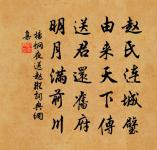 趙氏連城璧
由來天下傳
送君還舊府
明月滿前川
楊炯夜送趙縱詞典網
集